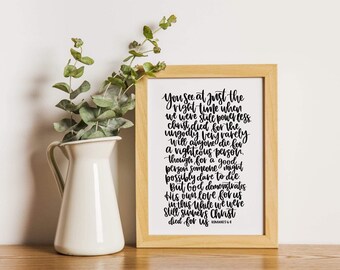 You see at just the
right time when
we were still powerless
christ died for the
ungodly very rarely
will anyone die for
a righteous person
though for a good
person someone might
possibly dare to die
But God demonstrates
His own love for us
in this while we were
still sinners Christ
died for us ROMANS 5:6-8